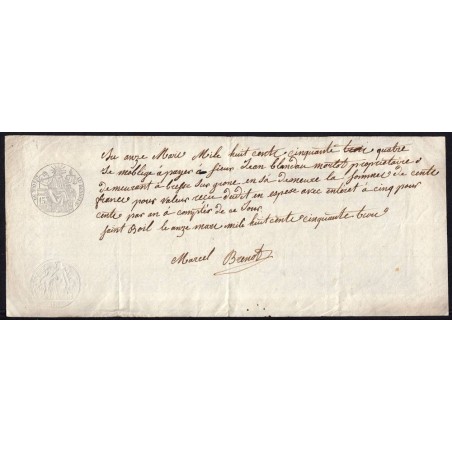 Au onze Mars Mile huit cents cinquante quatre
Je moblige à payer a sieur Jean Claudau mortot propriétaire
demeurant à bresse sur grone en sa demeure la somme de cents
francs pour valeur reçu dudit en espese avec enteret à cinq pour
cents par an a compter de ce Jour
saint Boil le onze mars mile huit cents cinquante trois
Marcel Benoit